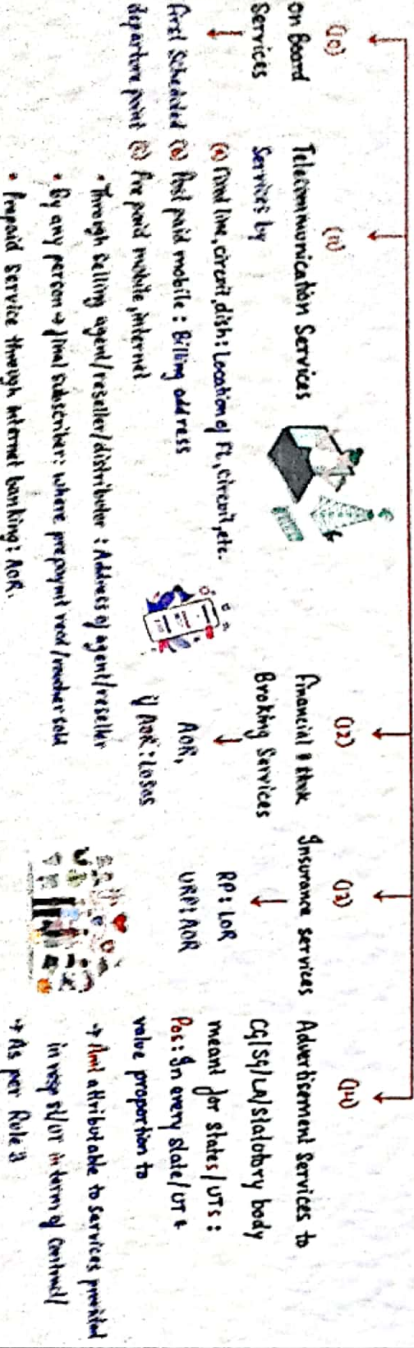 (10)
on Board
Services
first Scheduled
departure point
(11)
Telecommunication Services
Services by
(a) Fixed line, circuit, dish: Location of FL, circuit, etc.
(b) Post paid mobile: Billing address
(c) Pre paid mobile, internet
• Through selling agent/reseller/distributor: Address of agent/reseller
• By any person → final subscriber: where prepaymt recd/voucher sold
• Prepaid Service through internet banking: AOR.
(12)
Financial & Stock
Broking Services
AOR,
if AOR : LOSOS
(13)
Insurance Services
RP: LOR
URP: AOR
(14)
Advertisement Services to
CG/SG/LA/Statutory body
meant for states/UTs:
Pos: In every state/UT &
value proportion to
→ Amt attributable to services provided
in resp st/UT in term of Contract/
→ As per Rule 3